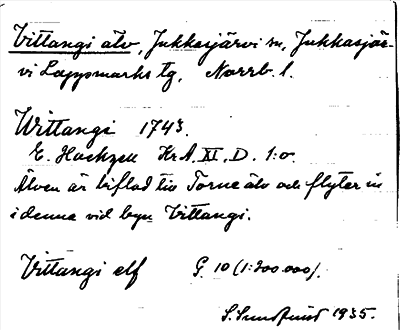 Vittangi älv, Jukkasjärvi sn, Jukkasjär-
vi Lappmarks tg, Norrb. l.
Wittangi 1743.
E. Hackzell KrA. XI. D. 1:o.
Älven är biflod till Torne älv och flyter in
i denne vid byn Vittangi.
Vittangi elf G. 10 (1:200.000).
S. Sundqvist 1935.